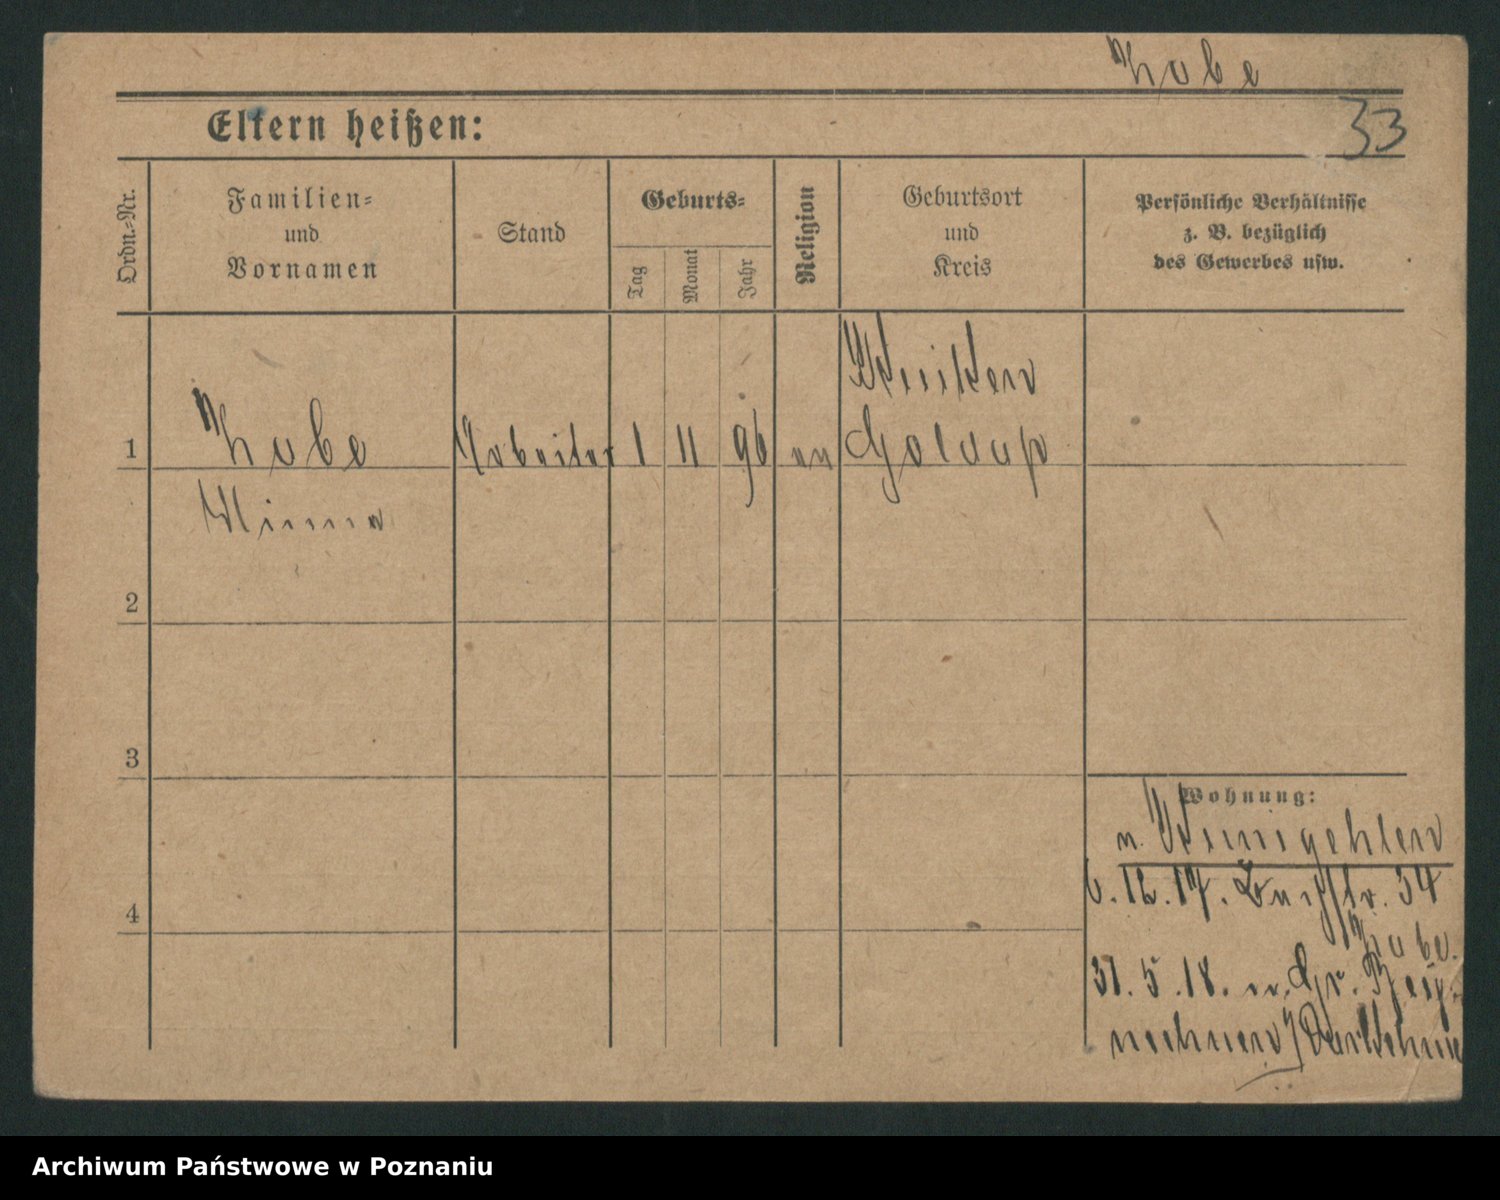 Kobe
33
Eltern heißen:
Ordn.-Nr.
Familien-
und
Vornamen
Stand
Geburts-
Tag
Monat
Jahr
Religion
Geburtsort
und
Kreis
Persönliche Verhältnisse
z. B. bezüglich
des Gewerbes usw.
1
Kobe
Arbeiter
1
11
96
ev
Goldap
Minna
2
3
4
Wohnung:
n.
6.12.17. 34
Kobe.
31.5.18. n. Gr.
Archiwum Państwowe w Poznaniu